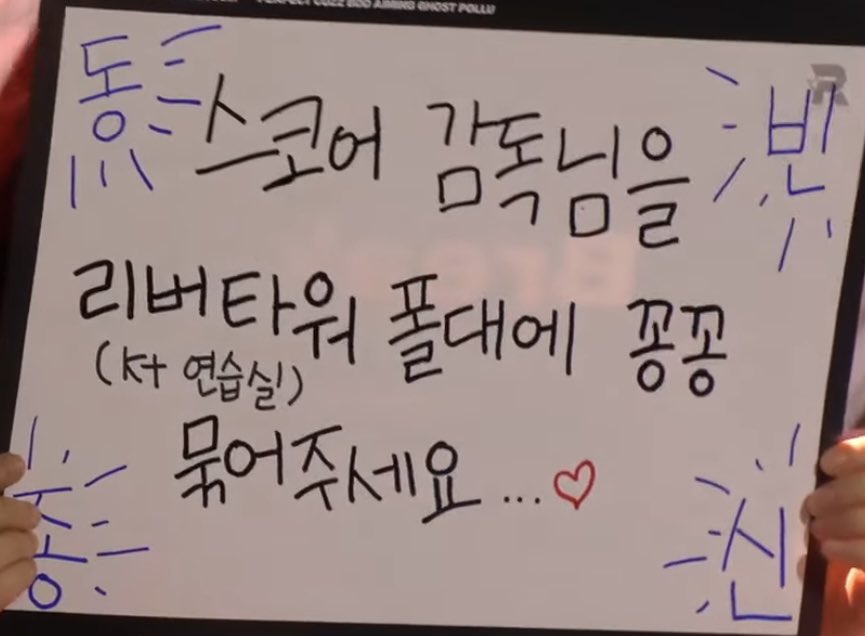 PERFECT CUZZ BDD AIMING GHOST POLLU
동 빈
스코어 감독님을
리버타워 폴대에 꽁꽁
(Kt 연습실)
묶어주세요...♡
종 신